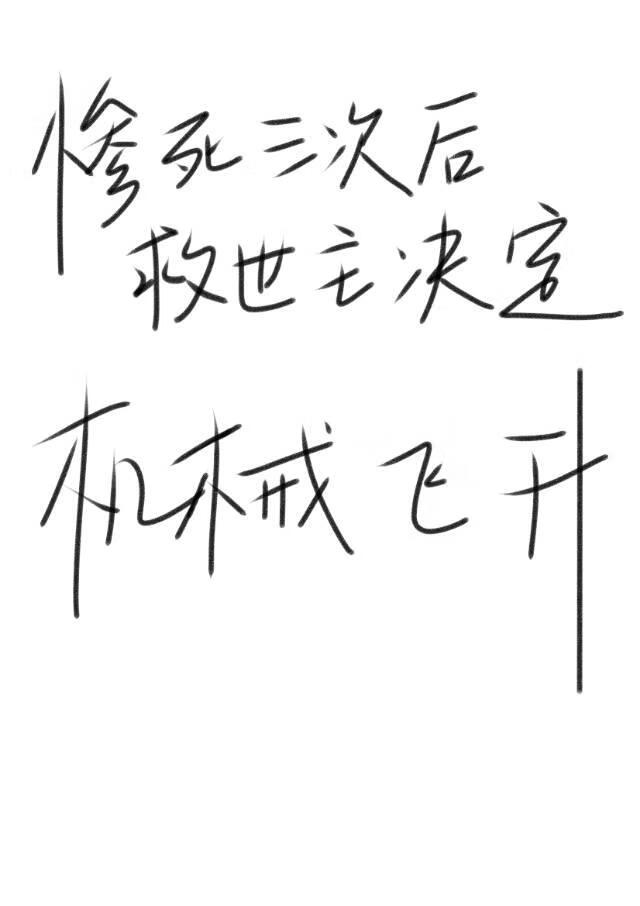 惨死三次后
救世主决定
机械飞升